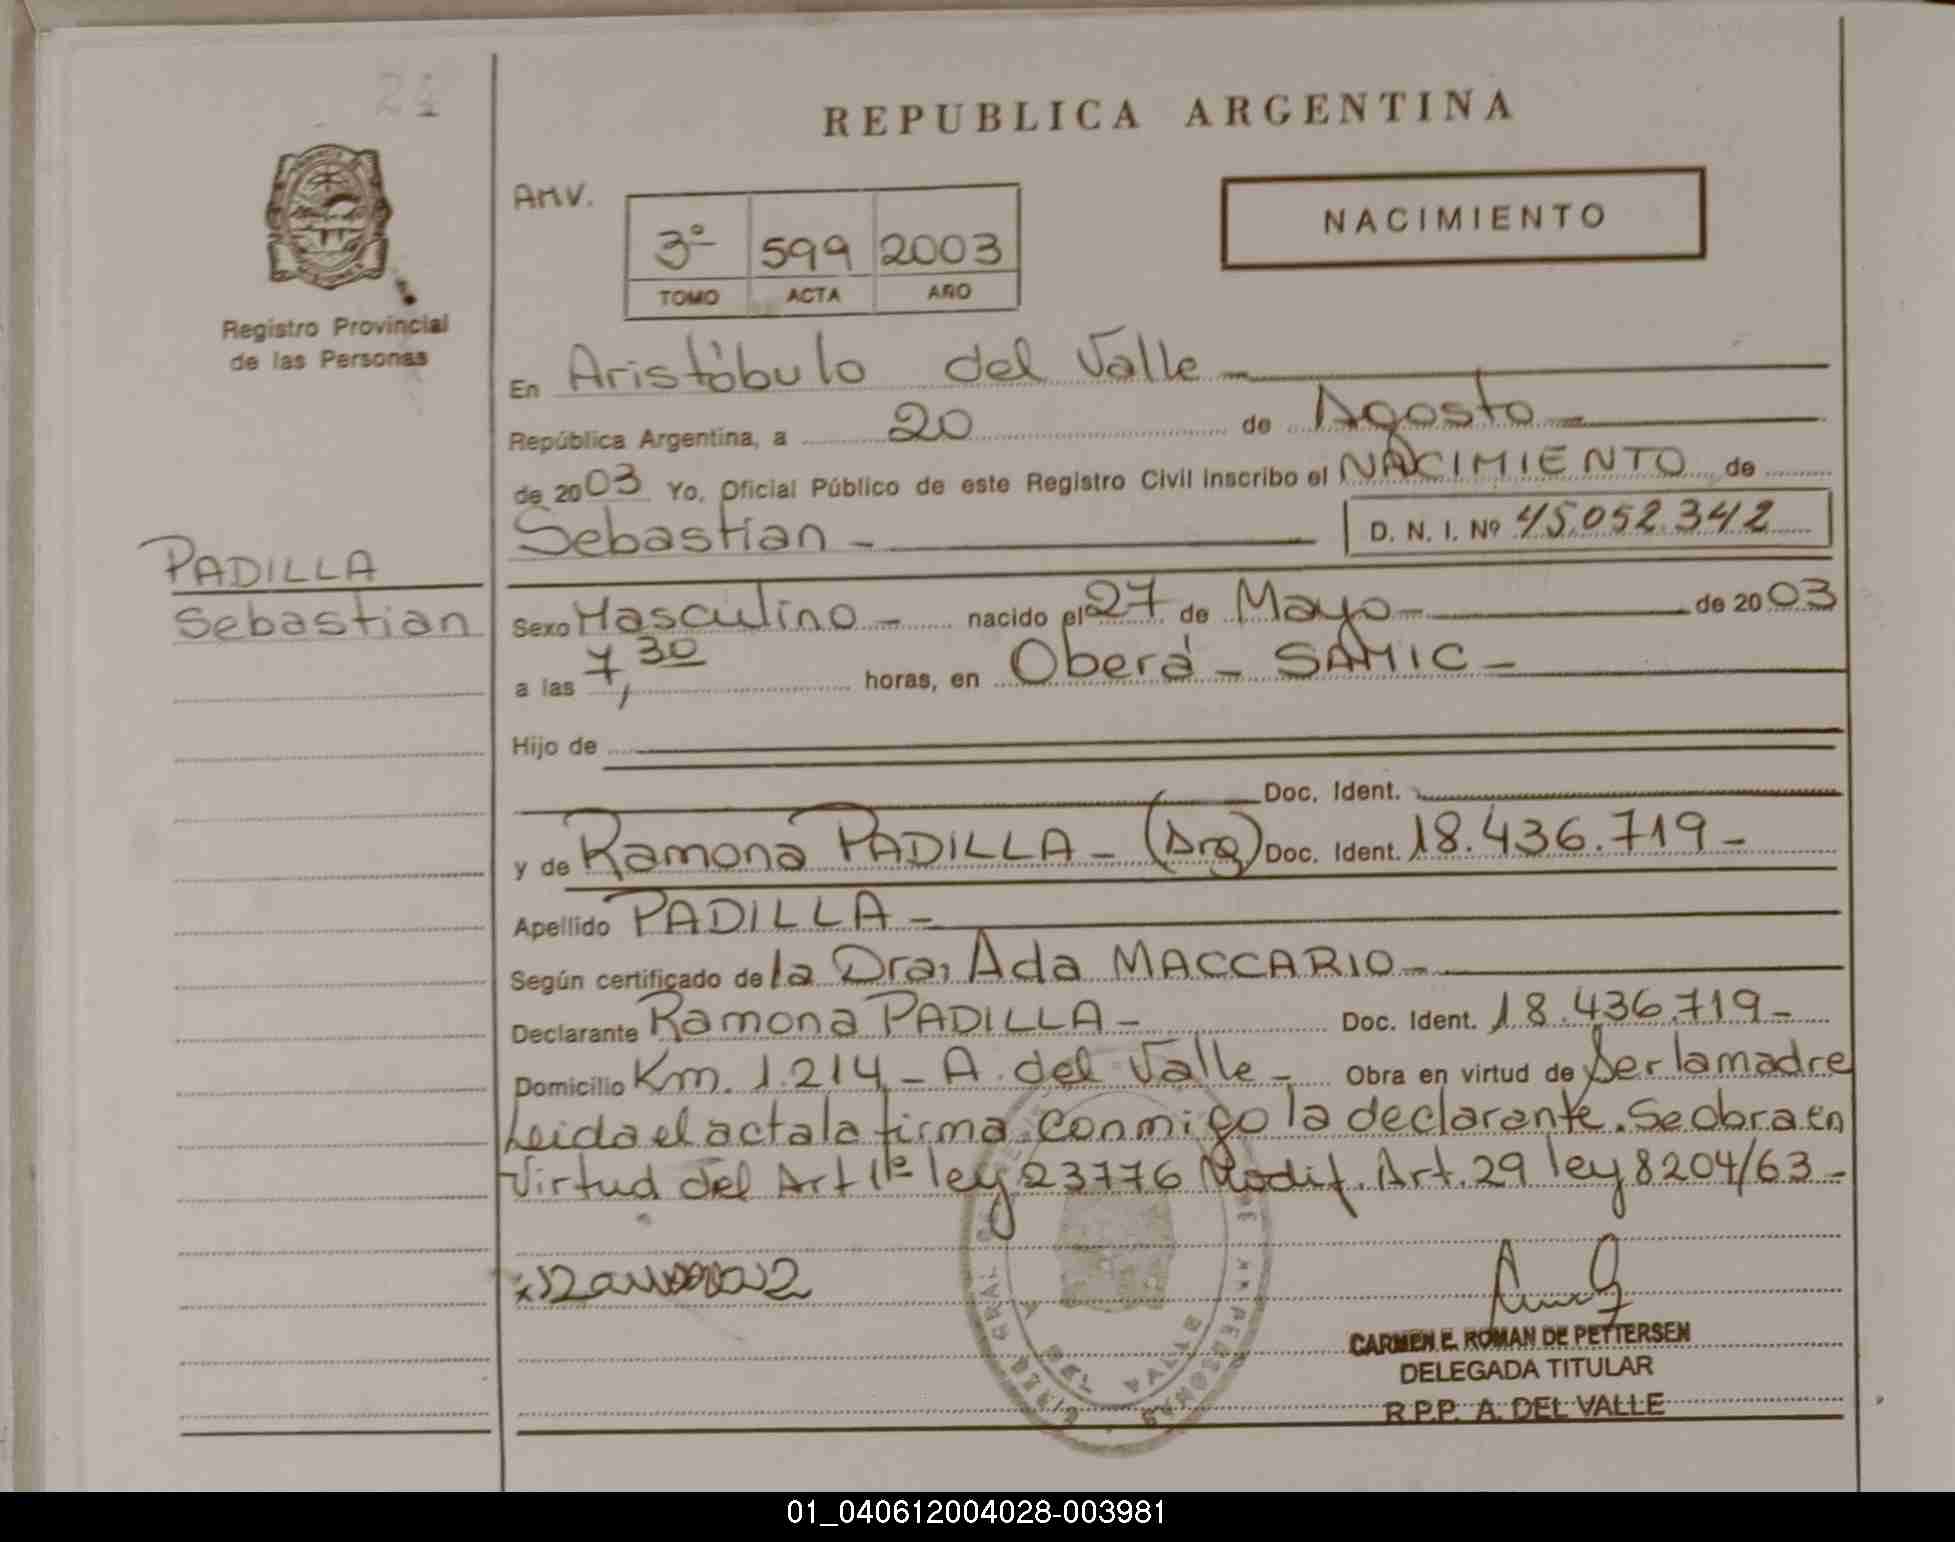 24
REPUBLICA ARGENTINA
Anv.
NACIMIENTO
3º 599 2003
TOMO ACTA AÑO
Registro Provincial
de las Personas
En Aristóbulo del Valle
República Argentina, a 20 de Agosto
de 2003 Yo, Oficial Público de este Registro Civil inscribo el NACIMIENTO de
Sebastian D. N. I. Nº 45.052.342
PADILLA
Sebastian
Sexo Masculino nacido el 27 de Mayo de 2003
a las 7,30 horas, en Oberá - SAMIC -
Hijo de
Doc. Ident.
y de Ramona PADILLA - (Arg) Doc. Ident. 18.436.719 -
Apellido PADILLA -
Según certificado de la Dra, Ada MACCARIO -
Declarante Ramona PADILLA - Doc. Ident. 18.436.719 -
Domicilio Km. 1.214 - A. del Valle - Obra en virtud de Ser la madre
Leida el acta la firma conmigo la declarante. Se obra en
Virtud del Art 1º ley 23776 Modif. Art. 29 ley 8204/63 -
CARMEN E. ROMAN DE PETTERSEN
DELEGADA TITULAR
R.P.P. A. DEL VALLE
01_040612004028-003981